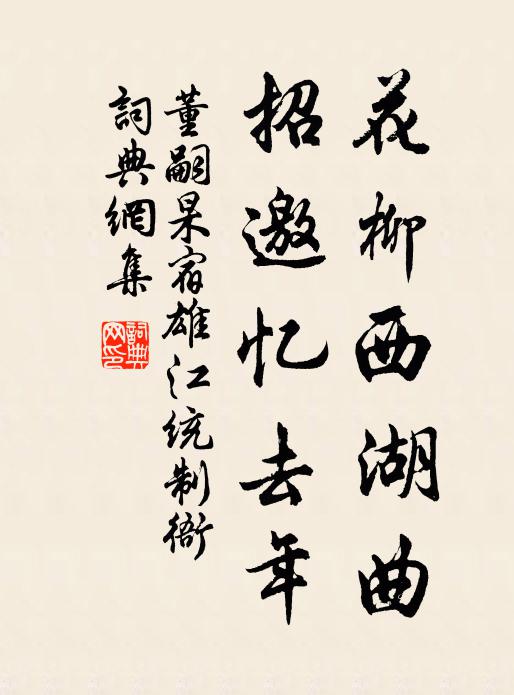 花柳西湖曲
招邀忆去年
董嗣杲宿雄江统制衙
詞典網集
詞典
网印